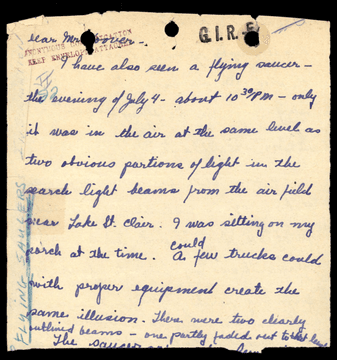 Dear Mr. Hoover -
G.I.R.-5
ANONYMOUS COMMUNICATION
KEEP ENVELOPE ATTACHED
I have also seen a flying saucer -
the evening of July 4 - about 10 30 PM - only
it was in the air at the same level as
two obvious portions of light in the
search light beams from the air field
near Lake St. Clair. I was sitting on my
porch at the time. could A few trucks could
with proper equipment create the
same illusion. There were two clearly
outlined beams - one partly faded out to that level
The saucer
FLYING SAUCERS